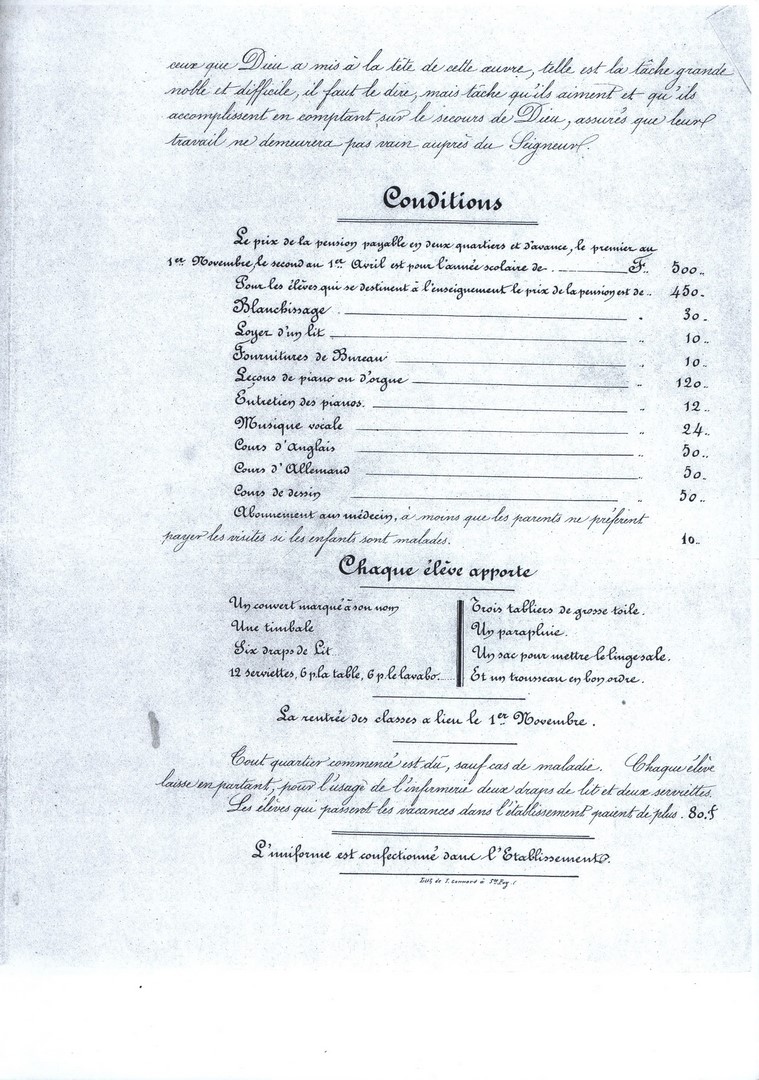 ceux que Dieu a mis à la tête de cette œuvre, telle est la tâche grande
noble et difficile, il faut le dire, mais tâche qu'ils aiment et qu'ils
accomplissent en comptant sur le secours de Dieu, assurés que leur
travail ne demeurera pas vain auprès du Seigneur.
Conditions
Le prix de la pension payable en deux quartiers et d'avance, le premier au
1er Novembre, le second au 1er Avril est pour l'année scolaire de . F. 500 ..
Pour les élèves qui se destinent à l'enseignement le prix de la pension est de .. 450 ..
Blanchissage . .. 30 ..
Loyer d'un lit .. 10 ..
Fournitures de Bureau .. 10 ..
Leçons de piano ou d'orgue .. 120 ..
Entretien des pianos. .. 12 ..
Musique vocale .. 24 ..
Cours d'Anglais .. 50 ..
Cours d'Allemand .. 50 ..
Cours de dessin .. 50 ..
Abonnement au médecin, à moins que les parents ne préfèrent
payer les visites si les enfants sont malades. 10 ..
Chaque élève apporte
Un couvert marqué à son nom
Une timbale
Six draps de Lit
12 serviettes, 6 p. la table, 6 p. le lavabo.
Trois tabliers de grosse toile.
Un parapluie.
Un sac pour mettre le linge sale.
Et un trousseau en bon ordre.
La rentrée des classes a lieu le 1er Novembre.
Tout quartier commencé est dû, sauf cas de maladie. Chaque élève
laisse en partant, pour l'usage de l'infirmerie deux draps de lit et deux serviettes.
Les élèves qui passent les vacances dans l'établissement paient de plus . 80. f
L'uniforme est confectionné dans l'Etablissement.
Lith. de à Ste Foy